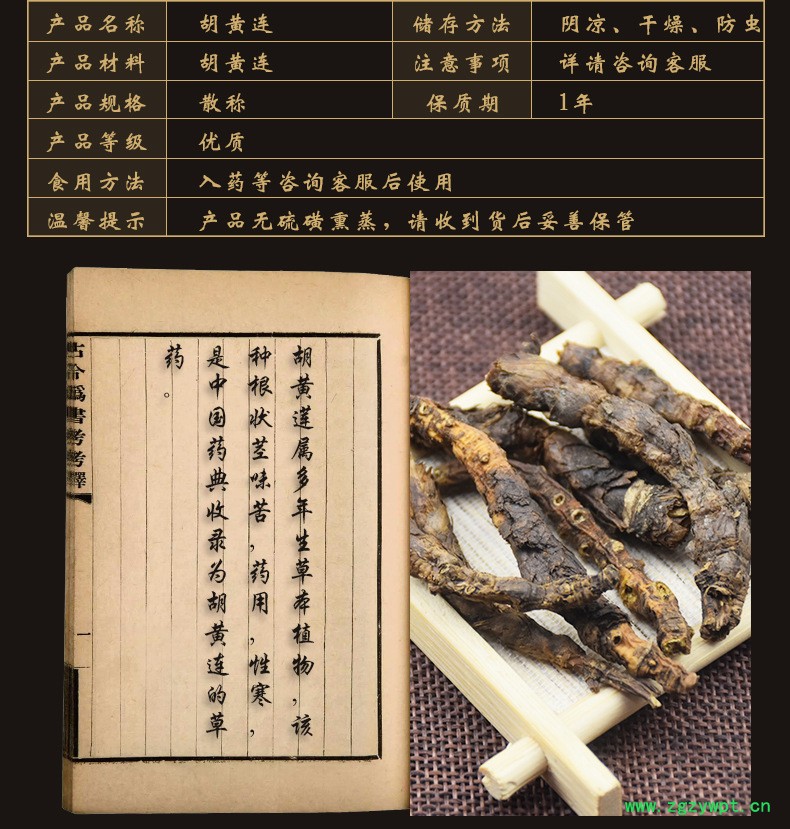 产品名称 胡黄连 储存方法 阴凉、干燥、防虫
产品材料 胡黄连 注意事项 详请咨询客服
产品规格 散称 保质期 1年
产品等级 优质
食用方法 入药等咨询客服后使用
温馨提示 产品无硫磺熏蒸，请收到货后妥善保管
胡黄莲属多年生草本植物，该
种根状茎味苦，药用，性寒，
是中国药典收录为胡黄连的草
药。
古今爲書考考釋
一
www.zgzywpt.cn